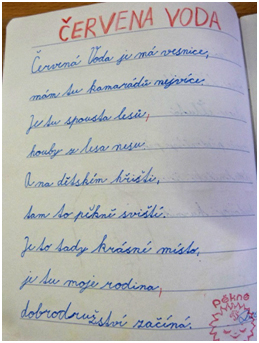 ČERVENA VODA
Červená Voda je má vesnice,
mám tu kamarádů nejvíce.
Je tu spousta lesů,
houby z lesa nesu.
A na dětském hřišti,
tam to pěkně sviští.
Je to tady krásné místo,
je tu moje rodina,
dobrodružství začíná.
Pěkné